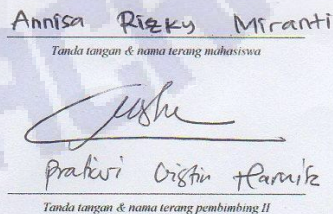 Annisa Rizky Miranti
Tanda tangan & nama terang mahasiswa
Pratiwi Cristin Harnita
Tanda tangan & nama terang pembimbing II